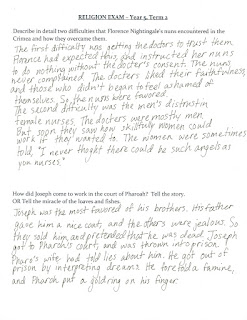 RELIGION EXAM - Year 5, Term 2
Describe in detail two difficulties that Florence Nightingale's nuns encountered in the
Crimea and how they overcame them.
The first difficulty was getting the doctors to trust them.
Florence had expected this, and instructed her nuns
to do nothing without the doctor's consent. The nuns
never complained. The doctors liked their faithfulness,
and those who didn't began to feel ashamed of
themselves. So the nuns were favored.
The second difficulty was the men's distrust in
female nurses. The doctors were mostly men.
But soon they saw how skillfully women could
work if they wanted to. The women were sometimes
told, "I never thoght there could be such angels as
you nurses."
How did Joseph come to work in the court of Pharoah? Tell the story.
OR Tell the miracle of the loaves and fishes.
Joseph was the most favored of his brothers. His father
gave him a nice coat, and the others were jealous. So
they sold him, and pretended that he was dead. Joseph
got to Pharoh's court, and was thrown into prison.
Pharo's wife had told lies about him. He got out of
prison by interpreting dreams. He foretold a famine,
and Pharoh put a gold ring on his finger.